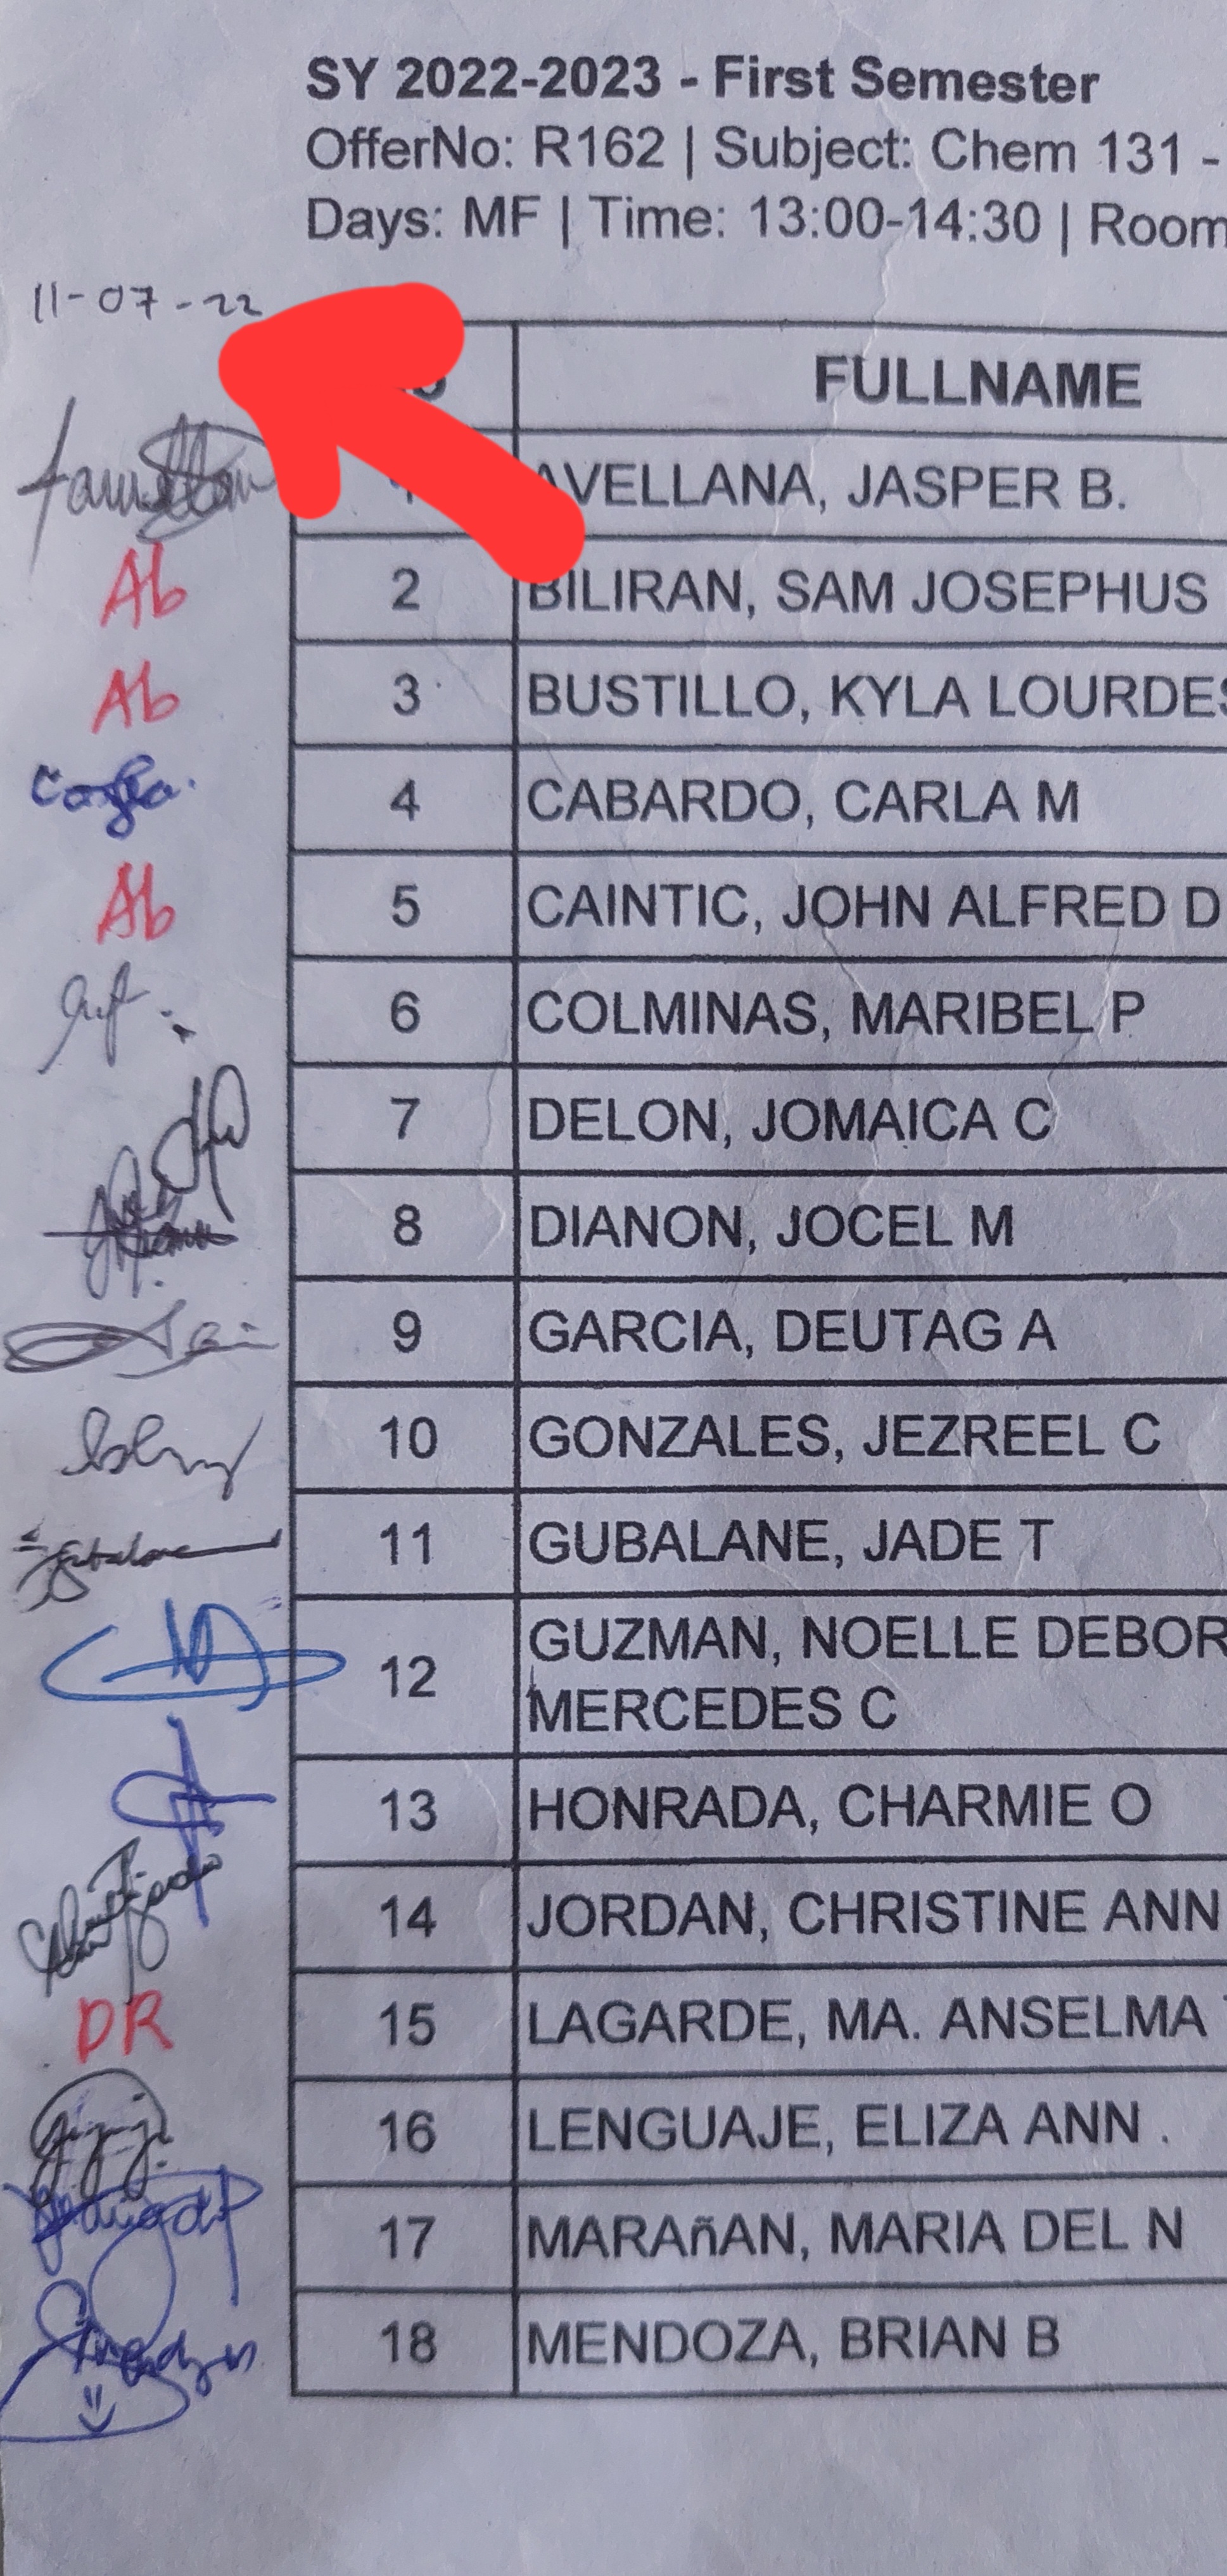 SY 2022-2023 - First Semester
OfferNo: R162 | Subject: Chem 131 -
Days: MF | Time: 13:00-14:30 | Room
11-07-22
FULLNAME
AVELLANA, JASPER B.
Ab 2 BILIRAN, SAM JOSEPHUS
Ab 3 BUSTILLO, KYLA LOURDES
Carla. 4 CABARDO, CARLA M
Ab 5 CAINTIC, JOHN ALFRED D
6 COLMINAS, MARIBEL P
7 DELON, JOMAICA C
8 DIANON, JOCEL M
9 GARCIA, DEUTAG A
10 GONZALES, JEZREEL C
11 GUBALANE, JADE T
12 GUZMAN, NOELLE DEBOR
MERCEDES C
13 HONRADA, CHARMIE O
14 JORDAN, CHRISTINE ANN
DR 15 LAGARDE, MA. ANSELMA
16 LENGUAJE, ELIZA ANN .
17 MARAñAN, MARIA DEL N
18 MENDOZA, BRIAN B